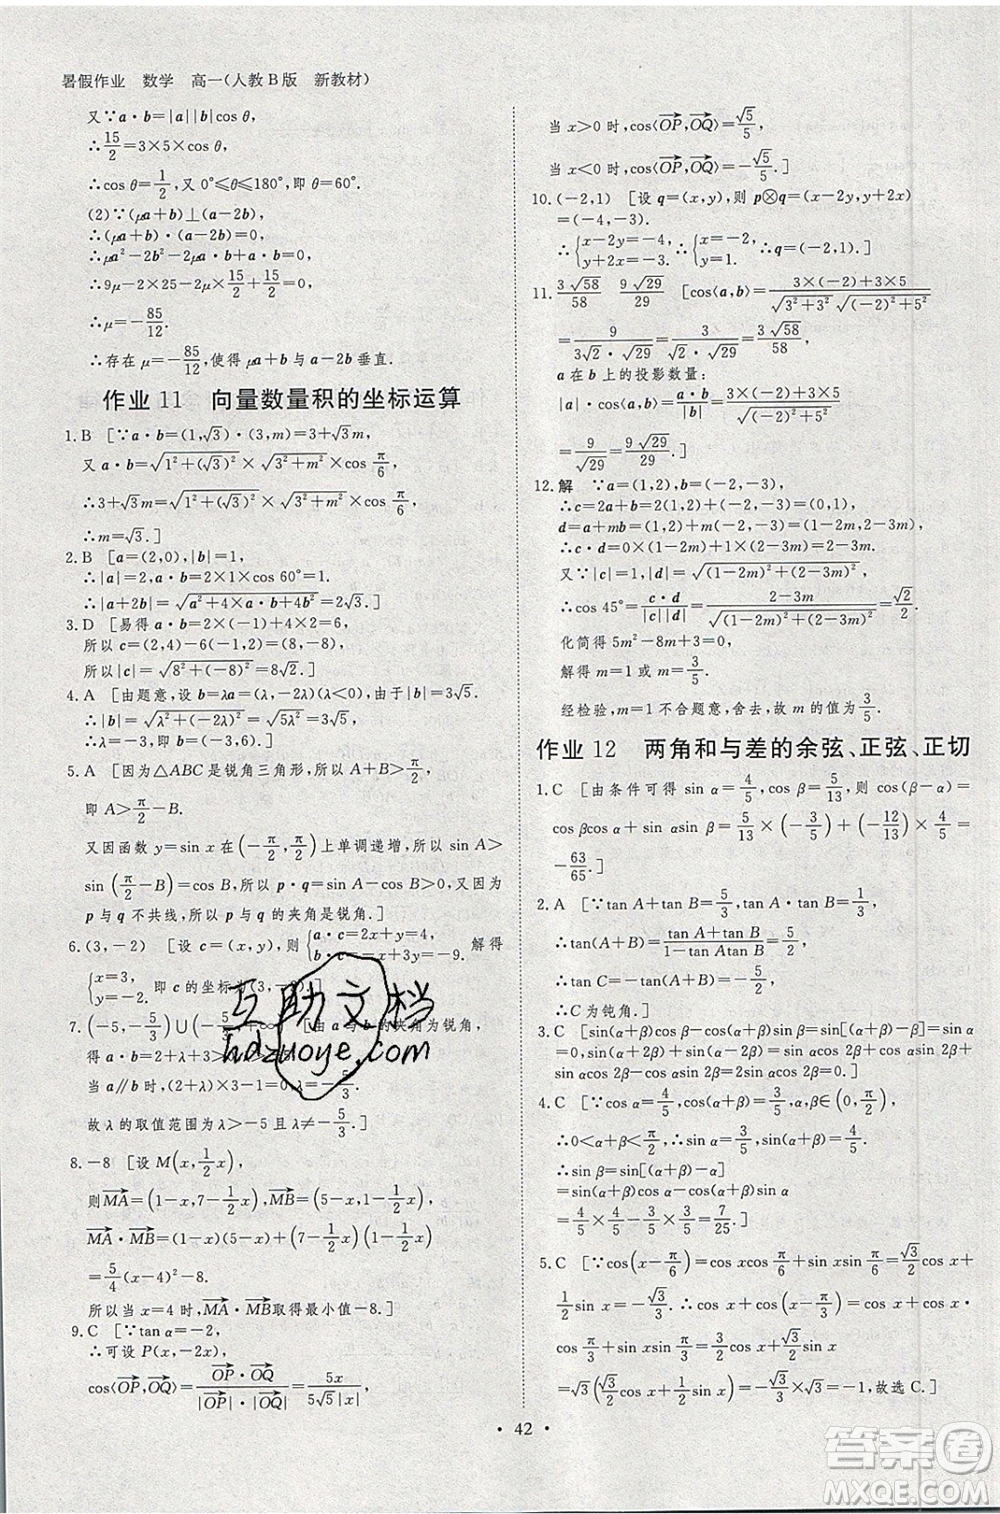 暑假作业 数学 高一(人教B版 新教材)
又∵a·b=|a||b|cos θ,
∴15/2=3×5×cos θ,
∴cos θ=1/2,又0°≤θ≤180°,即θ=60°.
(2)∵(μa+b)⊥(a-2b),
∴(μa+b)·(a-2b)
∴9μ-2×25-2μ×15/2+15/2=0,
∴μ=-85/12.
∴存在μ=-85/12,使得μa+b与a-2b垂直.
作业11 向量数量积的坐标运算
1.B [∵a·b=(1,√3)·(3,m)=3+√3m,
又a·b=√(1²+(√3)²)×√(3²+m²)×cos π/6,
∴3+√3m=√(1²+(√3)²)×√(3²+m²)×cos π/6,
∴m=√3.]
2.B [a=(2,0),|b|=1,
∴|a|=2,a·b=2×1×cos 60°=1.
∴|a+2b|=√(a²+4×a·b+4b²)=2√3.]
3.D [易得a·b=2×(-1)+4×2=6,
所以c=(2,4)-6(-1,2)=(8,-8),
所以|c|=√(8²+(-8)²)=8√2.]
4.A [由题意,设b=λa=(λ,-2λ)(λ<0),由于|b|=3√5.
5.A [因为△ABC是锐角三角形,所以A+B>π/2,
即A>π/2-B.
又因函数y=sin x在(-π/2,π/2)上单调递增,所以sin A>
sin(π/2-B)=cos B,所以p·q=sin A-cos B>0,又
p与q不共线,所以p与q的夹角是锐角.]
6.(3,-2) [设c=(x,y),则{a·c=3x+4y=1, b·c=2x-3y=... 解得
{x=3,
7.(-5,-5/3)∪(-5/3,+∞) [由a与b的夹角为锐角,
当a∥b时,
故λ的取值范围为λ>-5且λ≠-5/3.]
8.-8 [设M(x,1/2x),
则MA=(1-x,7-1/2x),MB=(5-x,1-1/2x),
MA·MB=(1-x)(5-x)+(7-1/2x)(1-1/2x)
=5/4(x-4)²-8.
所以当x=4时,MA·MB取得最小值-8.]
9.C [∵tan α=-2,
∴可设P(x,-2x),
cos⟨OP,OQ⟩=OP·OQ/(|OP|·|OQ|)=5x/(5√5|x|),
当x>0时,cos⟨OP,OQ⟩=√5/5,
当x<0时,cos⟨OP,OQ⟩=-√5/5.]
10.(-2,1) [设q=(x,y),则p⊗q=(x-2y,y+2x)
=(-4,-3).
∴{x-2y=-4, y+2x=-3. ∴{x=-2, y=1.]
11.3√58/58 9√29/29 [cos⟨a,b⟩=(3×(-2)+3×5)/(√(3²+3²)√((-2)²+5²))
=9/(3√2·√29)=3/(√2·√29)=3√58/58.
a在b上的投影数量=a·b/|b|=
|a|·cos⟨a,b⟩=(3×(-2)+3×5)/√((-2)²+5²)
=9/√29=9√29/29.]
12.解 ∵a=(1,2),b=(-2,-3),
∴c=2a+b=2(1,2)+(-2,-3)=(0,1),
d=a+mb=(1,2)+m(-2,-3)=(1-2m,2-3m),
∴c·d=0×(1-2m)+1×(2-3m)=2-3m.
又∵|c|=1,|d|=√((1-2m)²+(2-3m)²),
∴cos 45°=c·d/(|c||d|)=(2-3m)/√((1-2m)²+(2-3m)²)=√2/2.
化简得5m²-8m+3=0,
解得m=1或m=3/5.
经检验,m=1不合题意,舍去,故m的值为3/5.
作业12 两角和与差的余弦、正弦、正切
1.C [由条件可得sin α=4/5,cos β=5/13,则cos(β-α)=
cos βcos α+sin αsin β=5/13×(-3/5)+(-12/13)×4/5=
-63/65.]
2.A [∵tan A·tan B=1/3,tan A+tan B=5/3,
∴tan(A+B)=(tan A+tan B)/(1-tan Atan B)=5/2,
∴tan C=-tan(A+B)=-5/2,
∴C为钝角.]
3.C [sin(α+β)cos(α-β)+sin[(α-β)-β]=sin(α+β)·
4.C [∵cos α=4/5,cos(α+β)=3/5,α,β∈(0,π/2),
∴0<α+β<π/2,∴sin α=3/5,sin(α+β)=4/5,
∴sin β=sin[(α+β)-α]
=sin(α+β)cos α-cos(α+β)sin α
=4/5×4/5-3/5×3/5=7/25.]
5.C [∵cos(x-π/6)=cos xcos π/6+sin xsin π/6=√3/2cos x+
1/2sin x=-√3/3,∴cos x+cos(x-π/3)=cos x+cos xcos
π/3+sin xsin π/3=3/2cos x+√3/2sin x
=√3(√3/2cos x+1/2sin x)=√3×(-√3/3)=-1,故选C.]
·42·
互助文档
hdzuoye.com
答案卷
MXQE.COM